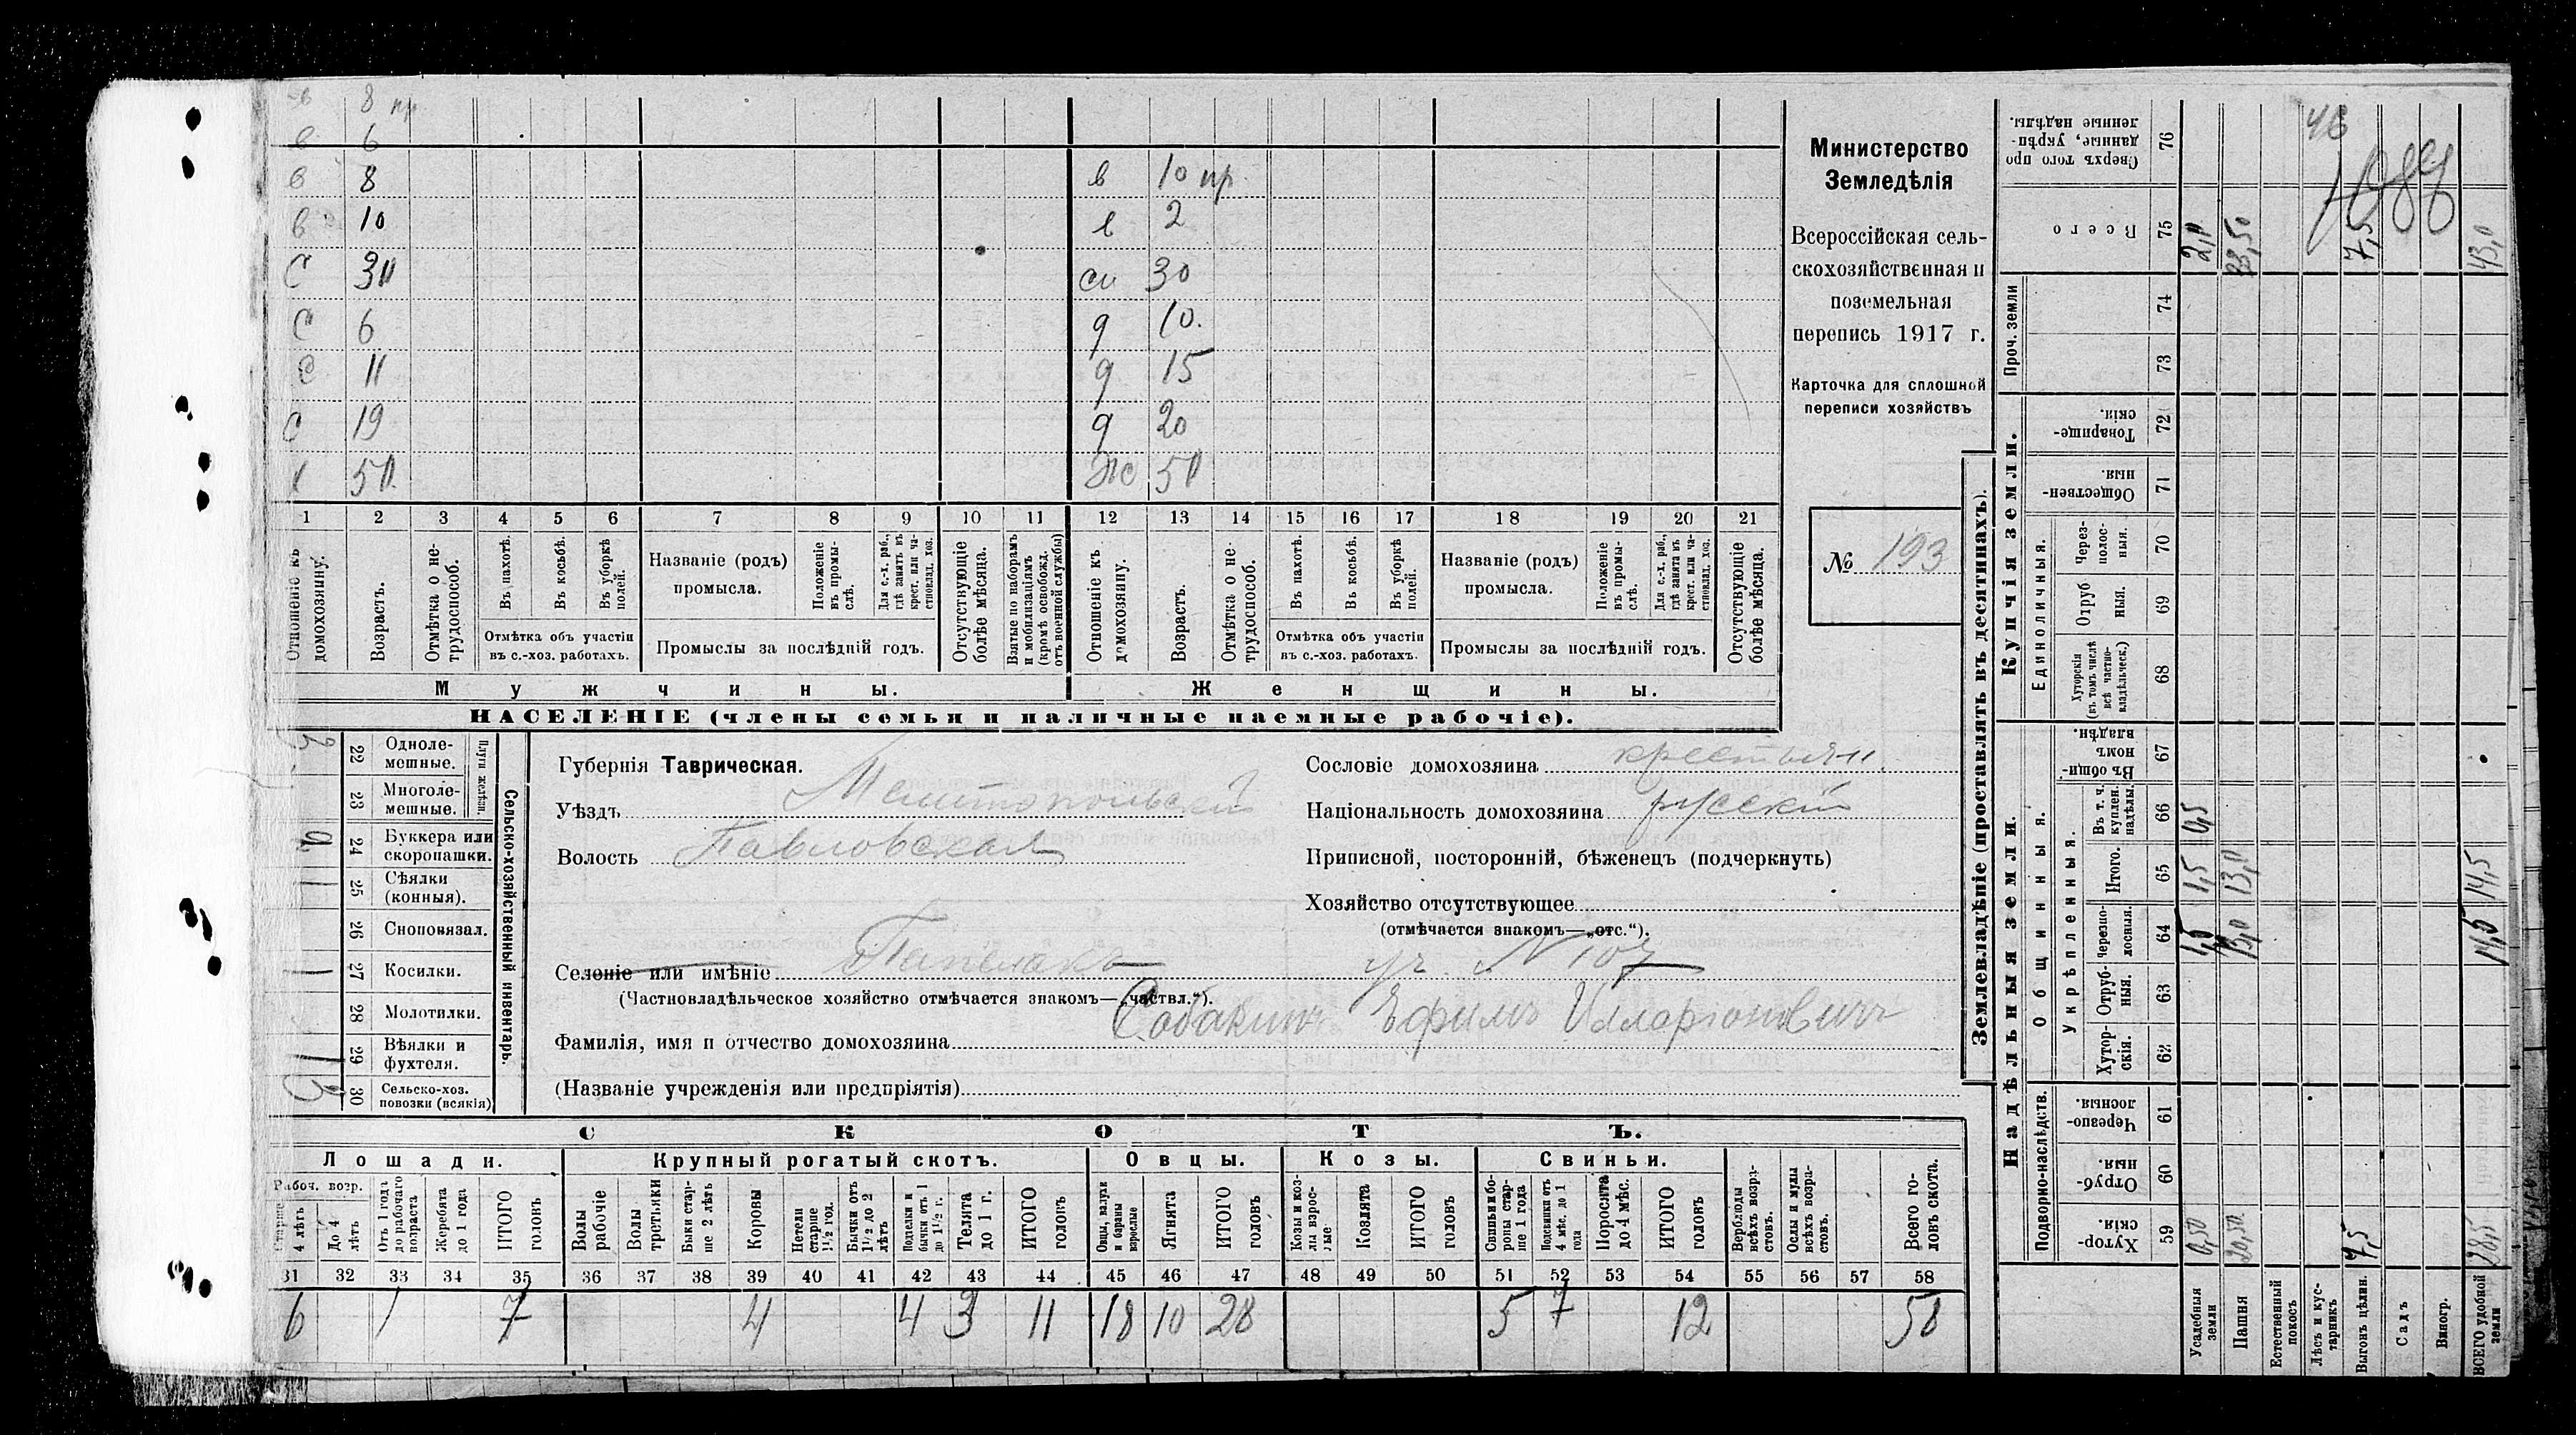 в 8 пр
в 6
в 8 в 10 пр.
в 10 в 2
С 30 сн 30
С 6 д 10.
С 11 д 15
С 19 д 20
Х 50. Ж 50
1 2 3 4 5 6 7 8 9 10 11 12 13 14 15 16 17 18 19 20 21
Отношеніе къ домохозяину.
Возрастъ.
Отмѣтка о не-трудоспособ.
Въ пахотѣ.
Въ косьбѣ.
Въ уборкѣ полей.
Отмѣтка объ участіи въ с.-хоз. работахъ.
Названіе (родъ) промысла.
Положеніе въ промы-слѣ.
Для с.-х. раб., гдѣ занятъ въ крест. или ча-стновлад. хоз.
Промыслы за послѣдній годъ.
Отсутствующіе болѣе мѣсяца.
Взятые по наборамъ и мобилизаціямъ (кромѣ освобожд. отъ военной службы)
Отношеніе къ домохозяину.
Возрастъ.
Отмѣтка о не-трудоспособ.
Въ пахотѣ.
Въ косьбѣ.
Въ уборкѣ полей.
Отмѣтка объ участіи въ с.-хоз. работахъ.
Названіе (родъ) промысла.
Положеніе въ промы-слѣ.
Для с.-х. раб., гдѣ занята въ крест. или ча-стновлад. хоз.
Промыслы за послѣдній годъ.
Отсутствующіе болѣе мѣсяца.
Мужчины. Женщины.
НАСЕЛЕНІЕ (члены семьи и наличные наемные рабочіе).
Министерство
Земледѣлія
Всероссійская сель-
скохозяйственная и
поземельная
перепись 1917 г.
Карточка для сплошной
переписи хозяйствъ
№ 193
Сельско-хозяйственный инвентарь.
Плуги желѣзн.
22 Одноле-мешные.
23 Многоле-мешные.
24 Буккера или скоропашки.
25 Сѣялки (конныя). 1
26 Сноповязал.
27 Косилки. 1
28 Молотилки.
29 Вѣялки и фухтеля. 1
30 Сельско-хоз. повозки (всякія) 3
Губернія Таврическая.
Уѣздъ Мелитопольскій
Волость Павловская
Селеніе или имѣніе уч. № 107
(Частновладѣльческое хозяйство отмѣчается знакомъ—„частвл.“).
Фамилія, имя и отчество домохозяина Собакинъ Ефимъ Илларіоновичъ
(Названіе учрежденія или предпріятія)
Сословіе домохозяина крестьян.
Національность домохозяина русскій
Приписной, посторонній, бѣженецъ (подчеркнуть)
Хозяйство отсутствующее
(отмѣчается знакомъ—„отс.“).
СКОТЪ.
Лошади. Крупный рогатый скотъ. Овцы. Козы. Свиньи.
Рабоч. возр.
Старше 4 лѣтъ
До 4 лѣтъ
Отъ 1 года до рабочаго возраста
Жеребята до 1 года
ИТОГО головъ
Волы рабочіе
Волы третьяки
Быки стар-ше 2 лѣтъ
Коровы
Нетели старше 1½ год.
Бычки отъ 1½ до 2 лѣтъ
Подтелки и бычки отъ 1 до 1½ г.
Телята до 1 г.
ИТОГО головъ
Овцы, валухи и бараны взрослые
Ягнята
ИТОГО головъ
Козы и коз-лы взрос-лые
Козлята
ИТОГО головъ
Свиньи и бо-ровы стар-ше 1 года
Подсвинки отъ 4 мѣс. до 1 года
Поросята до 4 мѣс.
ИТОГО головъ
Верблюды всѣхъ возра-стовъ.
Ослы и мулы всѣхъ возра-стовъ.
Всего го-ловъ скота.
31 32 33 34 35 36 37 38 39 40 41 42 43 44 45 46 47 48 49 50 51 52 53 54 55 56 57 58
6 1 7 4 4 3 11 18 10 28 5 7 12 58
Землевладѣніе (проставлять въ десятинахъ).
Надѣльныя земли. Купчія земли. Проч. земли
Подворно-наслѣдств.
Общинныя.
Укрѣпленныя.
Единоличныя.
59 Хутор-скія.
60 Отруб-ныя.
61 Черезпо-лосныя.
62 Хутор-скія.
63 Отруб-ныя.
64 Черезпо-лосныя.
65 Итого.
66 Въ т. ч. куплен. надѣлы.
67 Въ общи-номъ владѣн.
68 Хуторскія (въ томъ числѣ всѣ частно-владѣльческ.)
69 Отруб ныя.
70 Через-полос-ныя.
71 Обществен-ныя.
72 Товарище-скія.
73
74
75 Всего
76 Сверхъ того про данные, укрѣп-ленные надѣлы.
Усадебныя земли 0,50 1,5 1,5 0,5 2,0
Пашня 20,50 13,0 13,0 33,50
Естественный покосъ
Лѣсъ и кус-тарникъ
Выгонъ цѣлин. 7,5 7,5
Садъ
Виногр.
ВСЕГО удобной земли 28,5 14,5 14,5 43,0